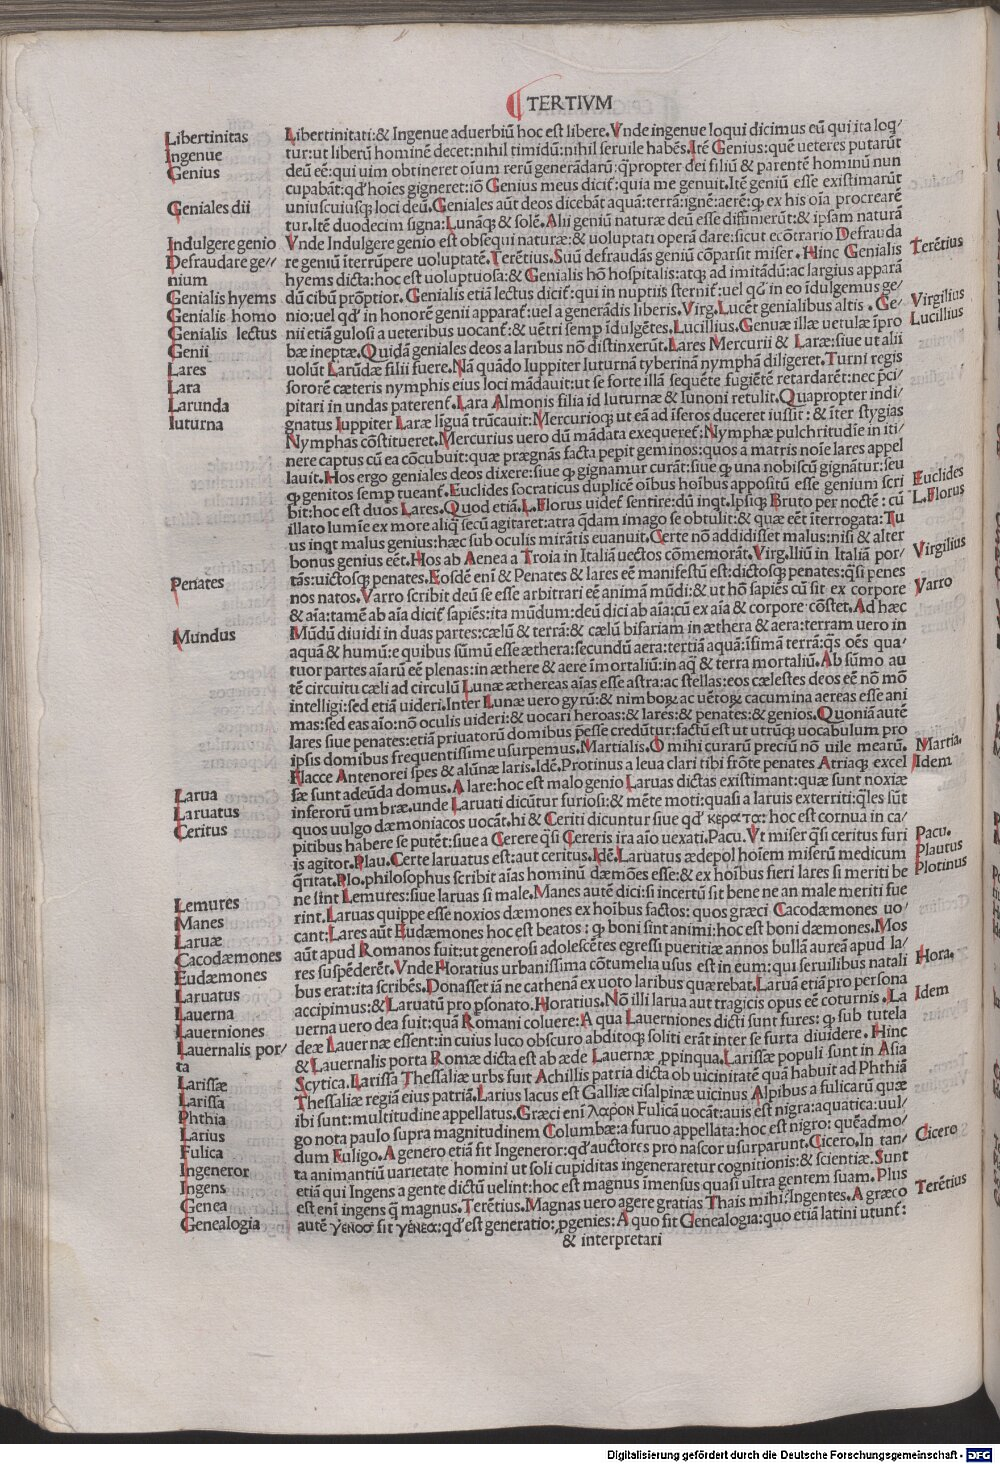 TERTIVM
Libertinitas
Ingenue
Genius
Geniales dii
Indulgere genio
Defraudare ge//
nium
Genialis hyems
Genialis homo
Genialis lectus
Genii
Lares
Lara
Larunda
Iuturna
Penates
Mundus
Larua
Laruatus
Ceritus
Lemures
Manes
Laruæ
Cacodæmones
Eudæmones
Laruatus
Lauerna
Lauerniones
Lauernalis por/
ta
Larissæ
Larissa
Phthia
Larius
Fulica
Ingeneror
Ingens
Genea
Genealogia
Libertinitati:& Ingenue aduerbiū hoc est libere.Vnde ingenue loqui dicimus eū qui ita loq̄/
tur:ut liberū hominē decet:nihil timidū:nihil seruile habēs.Itē Genius:quē ueteres putarūt
deū eē:qui uim obtineret oīum rerū generādarū:q̄propter dei filiū & parentē hominū nun
cupabāt:qd' hoīes gigneret:iō Genius meus dicit̄:quia me genuit.Itē geniū esse existimarūt
uniuscuiusq; loci deū.Geniales aūt deos dicebāt aquā:terrā:ignē:aerē:q; ex his oīa procrearē
tur.Itē duodecim signa:Lunāq; & solē.Alii geniū naturæ deū esse diffinierūt:& ipsam naturā
Vnde Indulgere genio est obsequi naturæ:& uoluptati operā dare:sicut ecōtrario Defrauda
re geniū īterrūpere uoluptatē.Terētius.Suū defraudās geniū cōparsit miser.Hinc Genialis
hyems dicta:hoc est uoluptuosa:& Genialis hō hospitalis:atq; ad imitādū:ac largius apparā
dū cibū prōptior.Genialis etiā lectus dicit̄:qui in nuptiis sternit̄:uel qd' in eo īdulgemus ge/
nio:uel qd' in honorē genii apparat̄:uel a generādis liberis.Virg.Lucēt genialibus altis.Ge/
nii etiā gulosi a ueteribus uocant̄:& uētri semp īdulgētes.Lucillius.Genuæ illæ uetulæ īpro
bæ ineptæ.Quidā geniales deos a laribus nō distinxerūt.Lares Mercurii & Laræ:siue ut alii
uolūt Larūdæ filii fuere.Nā quādo Iuppiter Iuturnā tyberinā nymphā diligeret.Turni regis
sororē cæteris nymphis eius loci mādauit:ut se forte illā sequēte fugiētē retardarēt:nec p̄ci/
pitari in undas paterent̄.Lara Almonis filia id Iuturnæ & Iunoni retulit.Quapropter indi/
gnatus Iuppiter Laræ līguā trūcauit:Mercurioq; ut eā ad īferos duceret iussit:& īter stygias
Nymphas cōstitueret.Mercurius uero dū mādata exequeret̄:Nymphæ pulchritudīe in iti/
nere captus cū ea cōcubuit:quæ prægnās facta pepit geminos:quos a matris noīe lares appel
lauit.Hos ergo geniales deos dixere:siue q; gignamur curāt:siue q; una nobiscū gignātur:seu
q; genitos semp tueant̄.Euclides socraticus duplicē oībus hoībus appositū esse genium scri
bit:hoc est duos Lares.Quod etiā.L.Florus uidet̄ sentire:dū inqt.Ipsiq; Bruto per noctē:cū
illato lumīe ex more aliq̄ secū agitaret:atra q̄dam imago se obtulit:& quæ eēt īterrogata:Tu
us inqt malus genius:hæc sub oculis mirātis euanuit.Certe nō addidisset malus:nisi & alter
bonus genius eēt.Hos ab Aenea a Troia in Italiā uectos cōmemorāt.Virg.Iliū in Italiā por/
tās:uictosq; penates.Eosdē enī & Penates & lares eē manifestū est:dictosq; penates:q̄si penes
nos natos.Varro scribit deū se esse arbitrari eē animā mūdi:& ut hō sapiēs cū sit ex corpore
& aīa:tamē ab aīa dicit̄ sapiēs:ita mūdum:deū dici ab aīa:cū ex aīa & corpore cōstet.Ad hæc
Mūdū diuidi in duas partes:cælū & terrā:& cælū bifariam in æthera & aera:terram uero in
aquā & humū:e quibus sūmū esse æthera:secundū aera:tertiā aquā:īfimā terrā:q̄s oēs qua/
tuor partes aīarū eē plenas:in æthere & aere īmortaliū:in aq̄ & terra mortaliū.Ab sūmo au
tē circuitu cæli ad circulū Lunæ æthereas aīas esse astra:ac stellas:eos cælestes deos eē nō mō
intelligi:sed etiā uideri.Inter Lunæ uero gyrū:& nimboꝝ ac uētoꝝ cacumina aereas esse ani
mas:sed eas aīo:nō oculis uideri:& uocari heroas:& lares:& penates:& genios.Quoniā autē
lares siue penates:etiā priuatorū domibus pesse credūtur:factū est ut utrūq; uocabulum pro
ipsis domibus frequentissime usurpemus.Martialis.O mihi curarū preciū nō uile mearū.
Flacce Antenorei spes & alūnæ laris.Idē.Protinus a leua clari tibi frōte penates Atriaq; excel
sæ sunt adeūda domus.A lare:hoc est malo genio Laruas dictas existimant:quæ sunt noxiæ
inferorū umbræ.unde Laruati dicūtur furiosi:& mēte moti:quasi a laruis exterriti:q̄les sūt
quos uulgo dæmoniacos uocāt.hi & Ceriti dicuntur siue qd' κερατα:hoc est cornua in ca/
pitibus habere se putēt:siue a Cerere q̄si Cereris ira aīo uexati.Pacu.Vt miser q̄si ceritus furi
is agitor.Plau.Certe laruatus est:aut ceritus.Idē.Laruatus ædepol hoīem miserū medicum
q̄ritat.Plo.philosophus scribit aīas hominū dæmōes esse:& ex hoībus fieri lares si meriti be
ne sint Lemures:siue laruas si male.Manes autē dici:si incertū sit bene ne an male meriti fue
rint.Laruas quippe esse noxios dæmones ex hoībus factos:quos græci Cacodæmones uo/
cant:Lares aūt Eudæmones hoc est beatos:q; boni sint animi:hoc est boni dæmones.Mos
aūt apud Romanos fuit:ut generosi adolescētes egressi pueritiæ annos bullā aureā apud la/
res suspēderēt.Vnde Horatius urbanissima cōtumelia usus est in eum:qui seruilibus natali
bus erat:ita scribēs.Donasset iā ne cathenā ex uoto laribus quærebat.Laruā etiā pro persona
accipimus:& Laruatū pro psonato.Horatius.Nō illi larua aut tragicis opus eē coturnis.La
uerna uero dea fuit:quā Romani coluere:A qua Lauerniones dicti sunt fures:q; sub tutela
deæ Lauernæ essent:in cuius luco obscuro abditoq; soliti erāt inter se furta diuidere.Hinc
& Lauernalis porta Romæ dicta est ab æde Lauernæ ꝓpinqua.Larissæ populi sunt in Asia
Scytica.Larissa Thessaliæ urbs fuit Achillis patria dicta ob uicinitatē quā habuit ad Phthiā
Thessaliæ regiā eius patriā.Larius lacus est Galliæ cisalpinæ uicinus Alpibus a fulicarū quæ
ibi sunt:multitudine appellatus.Græci enī λαρον Fulicā uocāt:auis est nigra:aquatica:uul/
go nota paulo supra magnitudinem Columbæ:a furuo appellata:hoc est nigro:quēadmo/
dum Fuligo.A genero etiā fit Ingeneror:qd' auctores pro nascor usurparunt.Cicero.In tan/
ta animantiū uarietate homini ut soli cupiditas ingeneraretur cognitionis:& scientiæ.Sunt
etiā qui Ingens a gente dictū uelint:hoc est magnus īmensus quasi ultra gentem suam.Plus
est enī ingens q̄ magnus.Terētius.Magnas uero agere gratias Thais mihi:Ingentes.A græco
autē γενοσ fit γενεα:qd' est generatio:ꝓgenies:A quo fit Genealogia:quo etiā latini utunt̄:
& interpretari
Terētius
Virgilius
Lucillius
Euclides
L.Florus
Virgilius
Varro
Martia.
Idem
Pacu.
Plautus
Plotinus
Hora.
Idem
Cicero
Terētius
Digitalisierung gefördert durch die Deutsche Forschungsgemeinschaft - DFG